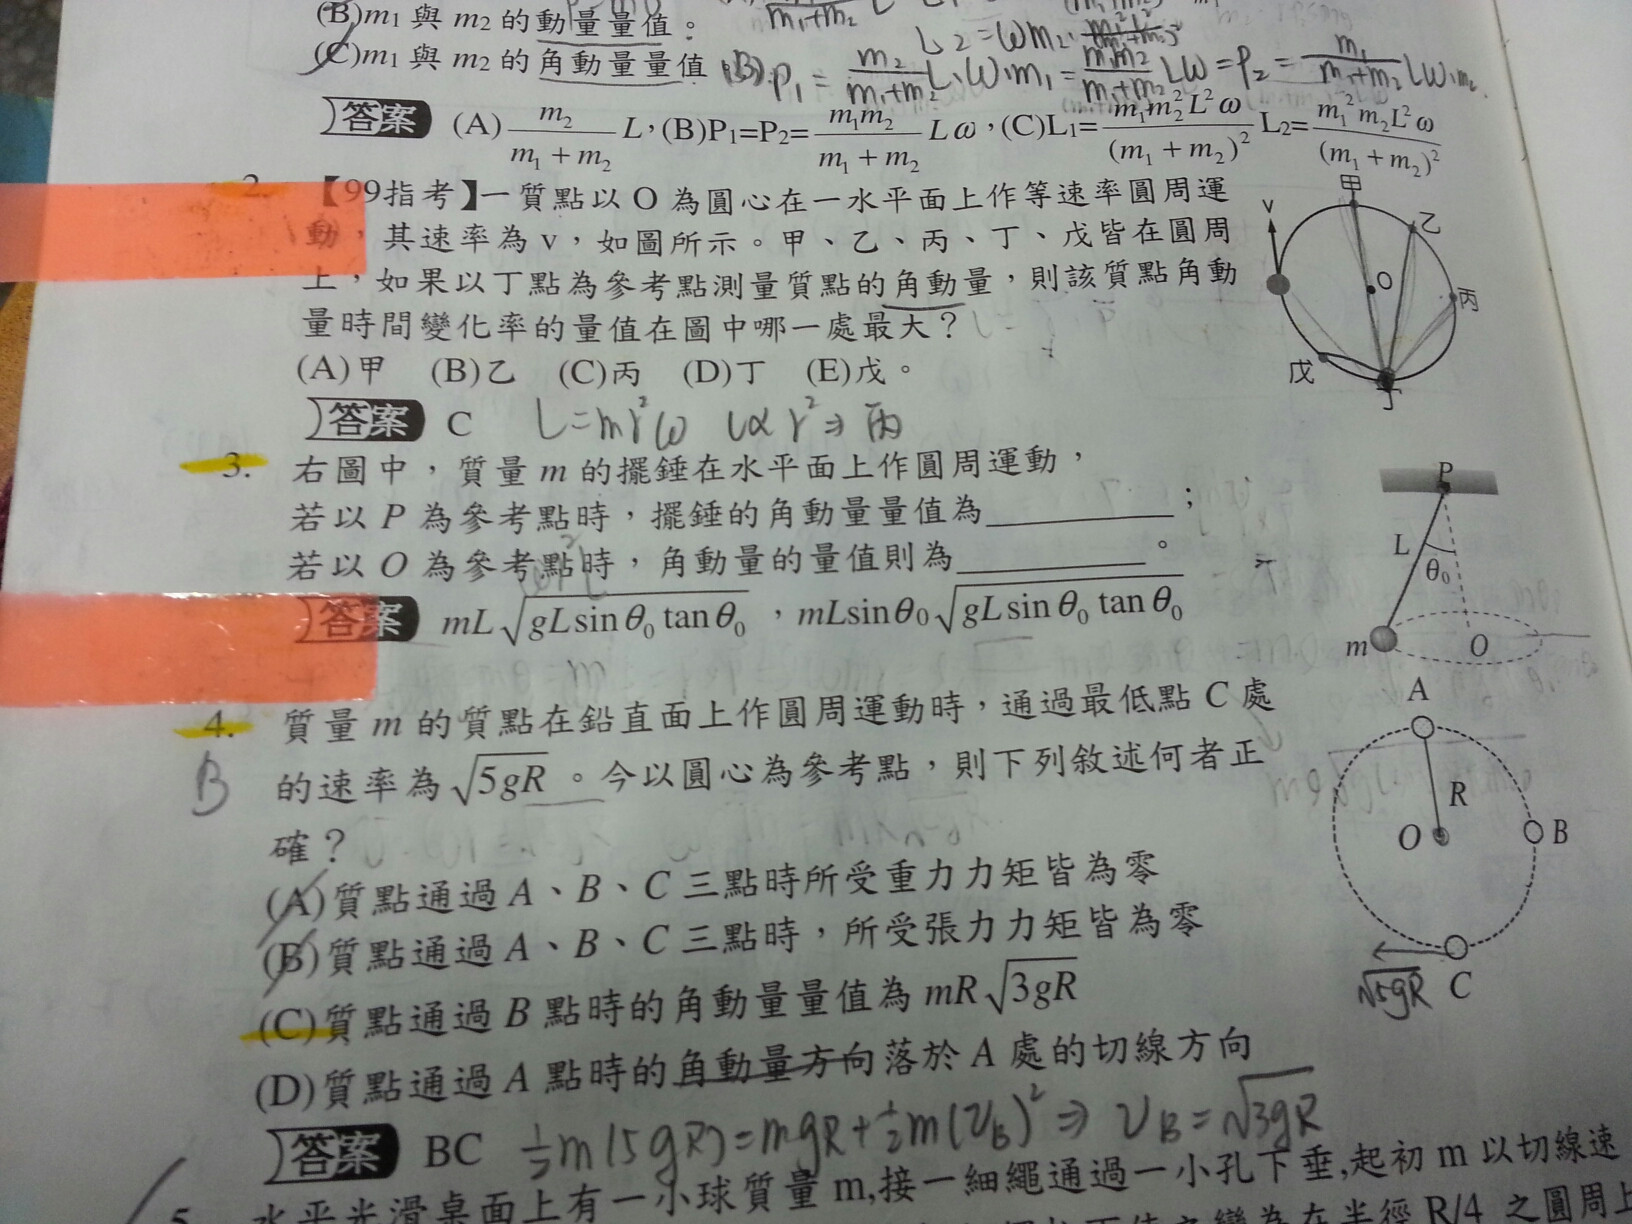 (B)m₁與 m₂ 的動量量值。
(C)m₁與 m₂ 的角動量量值
L₂=ωm₂·
(B) P₁ = m₂/(m₁+m₂) L·ω·m₁ = m₁m₂/(m₁+m₂) Lω = P₂ = m₁/(m₁+m₂) Lω·m₂
答案 (A) m₂/(m₁+m₂) L,(B)P₁=P₂= m₁m₂/(m₁+m₂) Lω,(C)L₁= m₁m₂²L²ω/(m₁+m₂)² L₂= m₁²m₂L²ω/(m₁+m₂)²
2. 【99指考】一質點以 O 為圓心在一水平面上作等速率圓周運
動,其速率為 v,如圖所示。甲、乙、丙、丁、戊皆在圓周
上,如果以丁點為參考點測量質點的角動量,則該質點角動
量時間變化率的量值在圖中哪一處最大?
(A)甲 (B)乙 (C)丙 (D)丁 (E)戊。
v
甲
乙
O
丙
戊
丁
答案 C L=mr²ω L∝r²⇒丙
3. 右圖中,質量 m 的擺錘在水平面上作圓周運動,
若以 P 為參考點時,擺錘的角動量量值為______;
若以 O 為參考點時,角動量的量值則為______。
答案 mL√(gLsinθ₀tanθ₀) ,mLsinθ₀√(gLsinθ₀tanθ₀)
P
L
θ₀
m
O
4. 質量 m 的質點在鉛直面上作圓周運動時,通過最低點 C 處
B 的速率為√5gR。今以圓心為參考點,則下列敘述何者正
確?
(A)質點通過 A、B、C 三點時所受重力力矩皆為零
(B)質點通過 A、B、C 三點時,所受張力力矩皆為零
(C)質點通過 B 點時的角動量量值為 mR√3gR
(D)質點通過 A 點時的角動量方向落於 A 處的切線方向
A
R
O
B
√5gR C
答案 BC ½m(5gR)=mgR+½m(υB)²⇒ υB=√3gR
5. 水平光滑桌面上有一小球質量 m,接一細繩通過一小孔下垂,起初 m 以切線速
變為在半徑 R/4 之圓周上